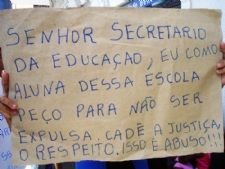 SENHOR SECRETARIO
DA EDUCAÇAO, EU COMO
ALUNA DESSA ESCOLA
PEÇO PARA NÃO SER
EXPULSA. CADÊ A JUSTIÇA,
O RESPEITO. ISSO É ABUSO!!!